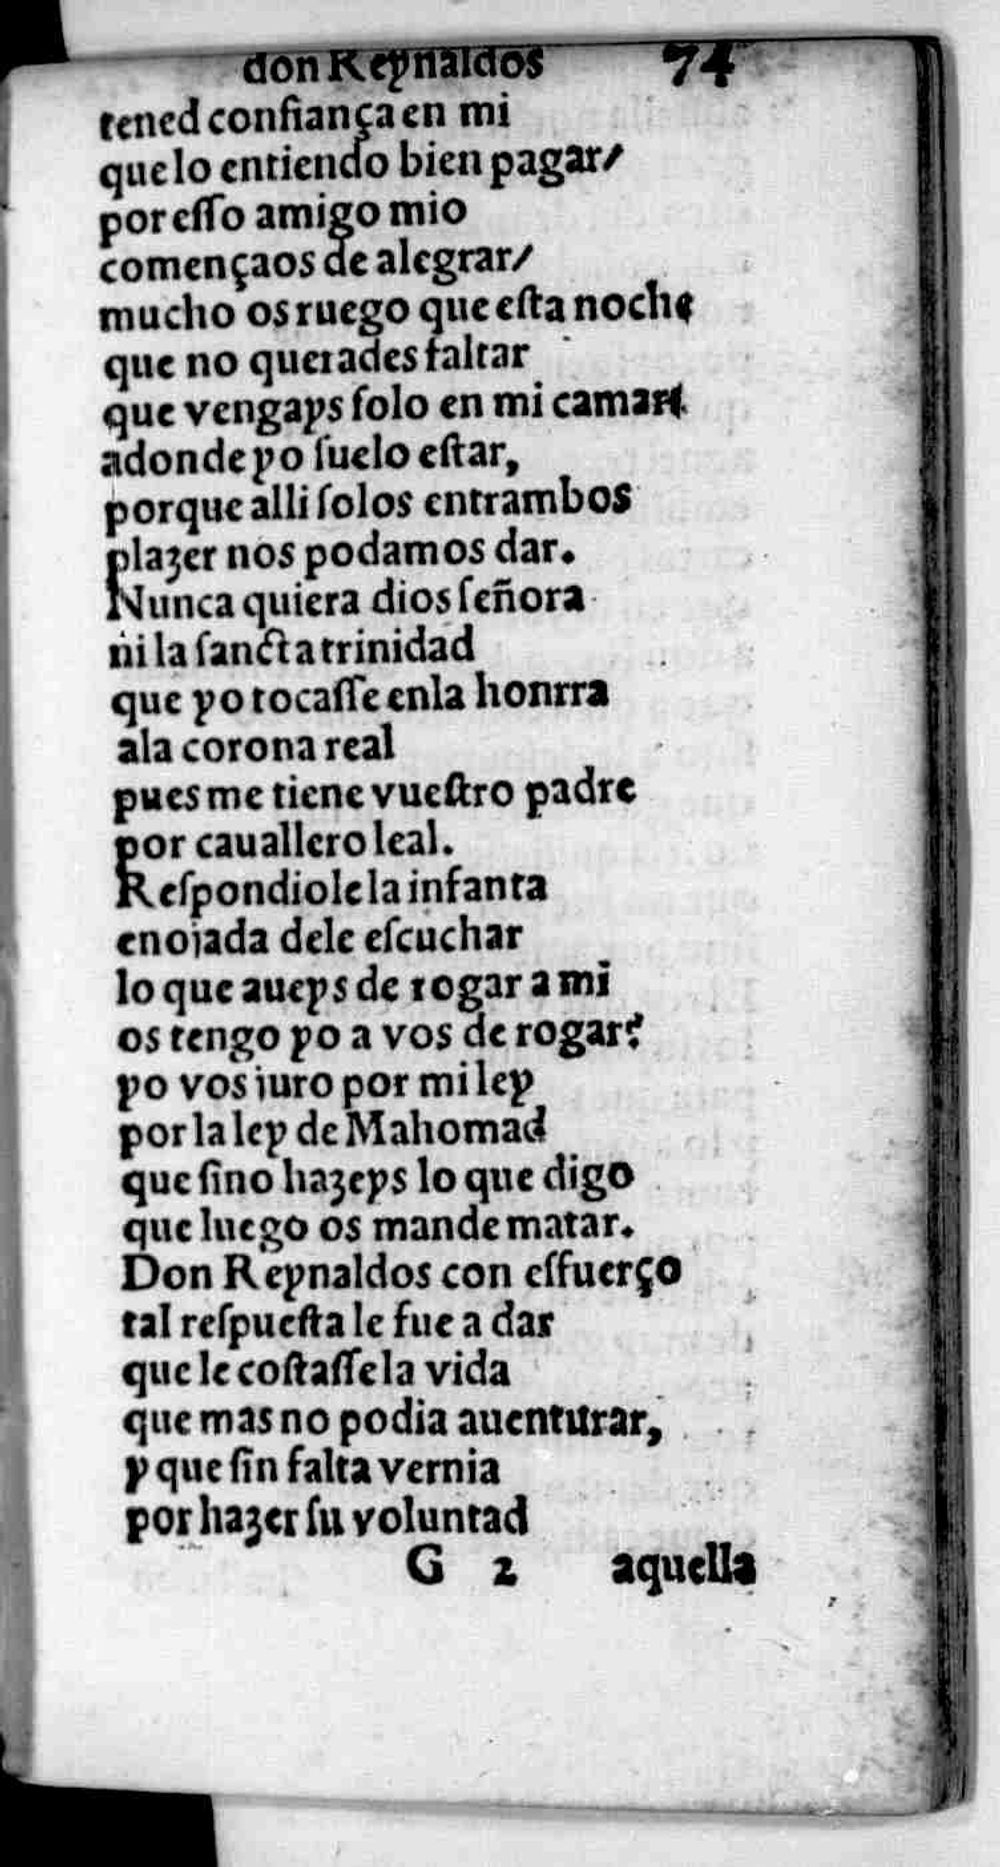 don Reynaldos 74
tened confiança en mi
que lo entiendo bien pagar/
por eſſo amigo mio
començaos de alegrar/
mucho os ruego que eſta noche
que no querades faltar
que vengays ſolo en mi camara
adonde yo ſuelo eſtar,
porque alli ſolos entrambos
plazer nos podamos dar.
Nunca quiera dios ſeñora
ni la ſancta trinidad
que yo tocaſſe enla honrra
ala corona real
pues me tiene vueſtro padre
por cauallero leal.
Reſpondiole la infanta
enojada dele eſcuchar
lo que aueys de rogar a mi
os tengo yo a vos de rogar?
yo vos iuro por mi ley
por la ley de Mahomad
que ſino hazeys lo que digo
que luego os mande matar.
Don Reynaldos con eſfuerço
tal reſpueſta le fue a dar
que le coſtaſſe la vida
que mas no podia auenturar,
y que ſin falta vernia
por hazer ſu voluntad
G 2 aquella